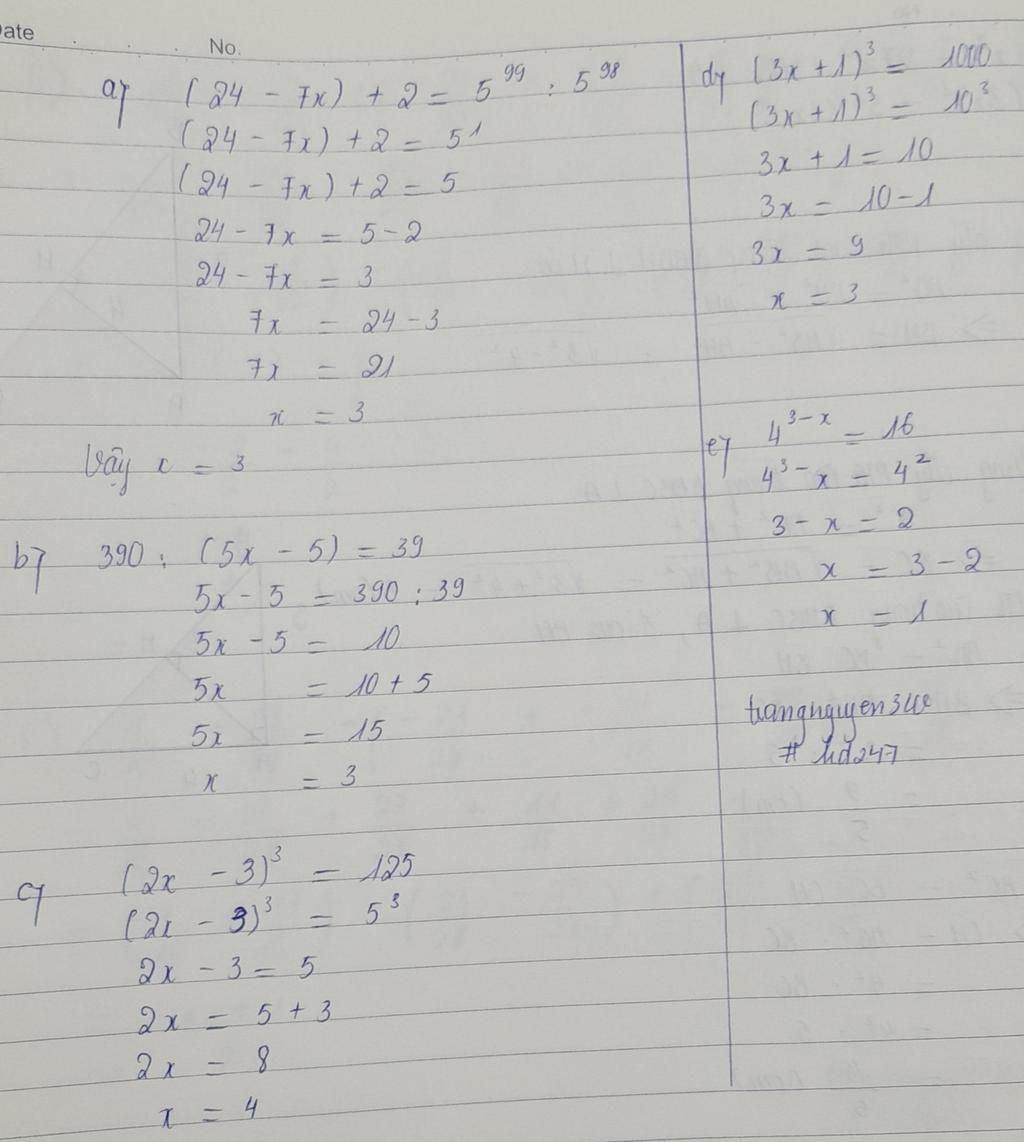 Date
No.
a) (24 - 7x) + 2 = 5^99 : 5^98
(24 - 7x) + 2 = 5^1
(24 - 7x) + 2 = 5
24 - 7x = 5 - 2
24 - 7x = 3
7x = 24 - 3
7x = 21
x = 3
Vậy x = 3
b) 390 : (5x - 5) = 39
5x - 5 = 390 : 39
5x - 5 = 10
5x = 10 + 5
5x = 15
x = 3
c) (2x - 3)^3 = 125
(2x - 3)^3 = 5^3
2x - 3 = 5
2x = 5 + 3
2x = 8
x = 4
d) (3x + 1)^3 = 1000
(3x + 1)^3 = 10^3
3x + 1 = 10
3x = 10 - 1
3x = 9
x = 3
e) 4^3-x = 16
4^3-x = 4^2
3 - x = 2
x = 3 - 2
x = 1
# hd247